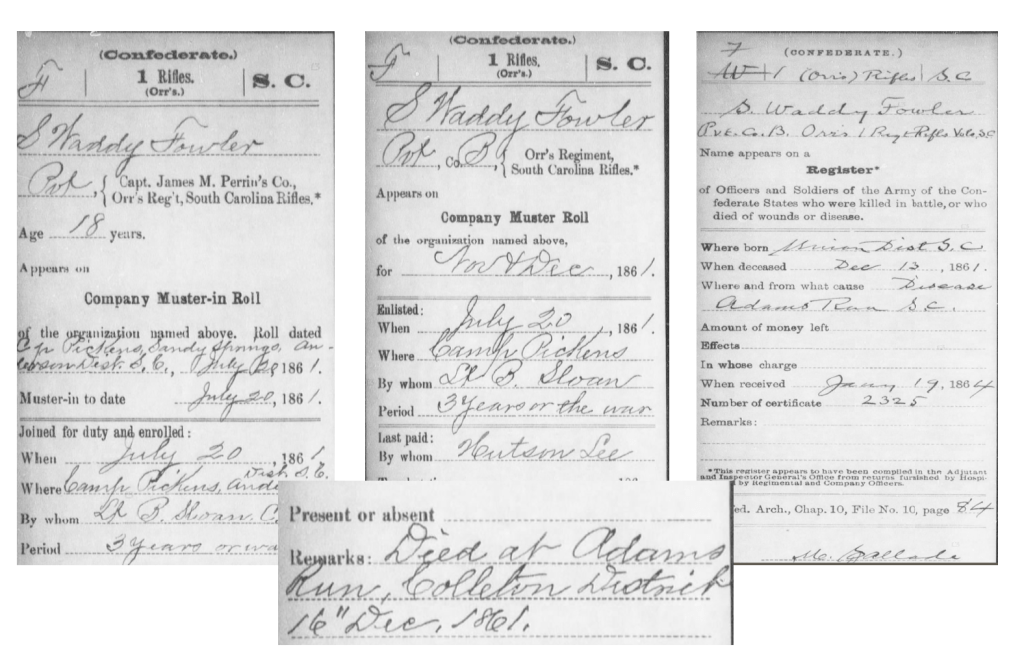 (Confederate.)
F | 1 Rifles. (Orr's.) | S. C.
S Waddy Fowler
Pvt, { Capt. James M. Perrin's Co., Orr's Reg't, South Carolina Rifles.*
Age 18 years.
Appears on
Company Muster-in Roll
of the organization named above. Roll dated
Cp Pickens, Sandy Springs, An-
derson Dist. S. C., July 20, 1861.
Muster-in to date July 20, 1861.
Joined for duty and enrolled:
When July 20, 1861
Dist. S. C.
Where Camp Pickens, Ande
By whom Lt B. Sloan. C.
Period 3 Years or wa
(Confederate.)
F | 1 Rifles. (Orr's.) | S. C.
S Waddy Fowler
Pvt, Co. B, { Orr's Regiment, South Carolina Rifles.*
Appears on
Company Muster Roll
of the organization named above,
for Nov & Dec, 1861.
Enlisted:
When July 20, 1861.
Where Camp Pickens
By whom Lt B. Sloan
Period 3 Years or the war
Last paid:
By whom Hutson Lee
Present or absent
Remarks: Died at Adams
Run, Colleton District
16" Dec, 1861.
(CONFEDERATE.)
F
W | 1 (Orr's) Rifles | S. C
S. Waddy Fowler
Pvt. Co. B. Orr's 1 Regt Rifles Vols, S C
Name appears on a
Register*
of Officers and Soldiers of the Army of the Con-
federate States who were killed in battle, or who
died of wounds or disease.
Where born Union Dist S. C
When deceased Dec 13, 1861.
Where and from what cause Disease
Adams Run S. C.
Amount of money left
Effects
In whose charge
When received Jany 19, 1864
Number of certificate 2325
Remarks:
*This register appears to have been compiled in the Adjutant
and Inspector General's Office from returns furnished by Hospi-
l by Regimental and Company Officers.
ed. Arch., Chap. 10, File No. 10, page 84